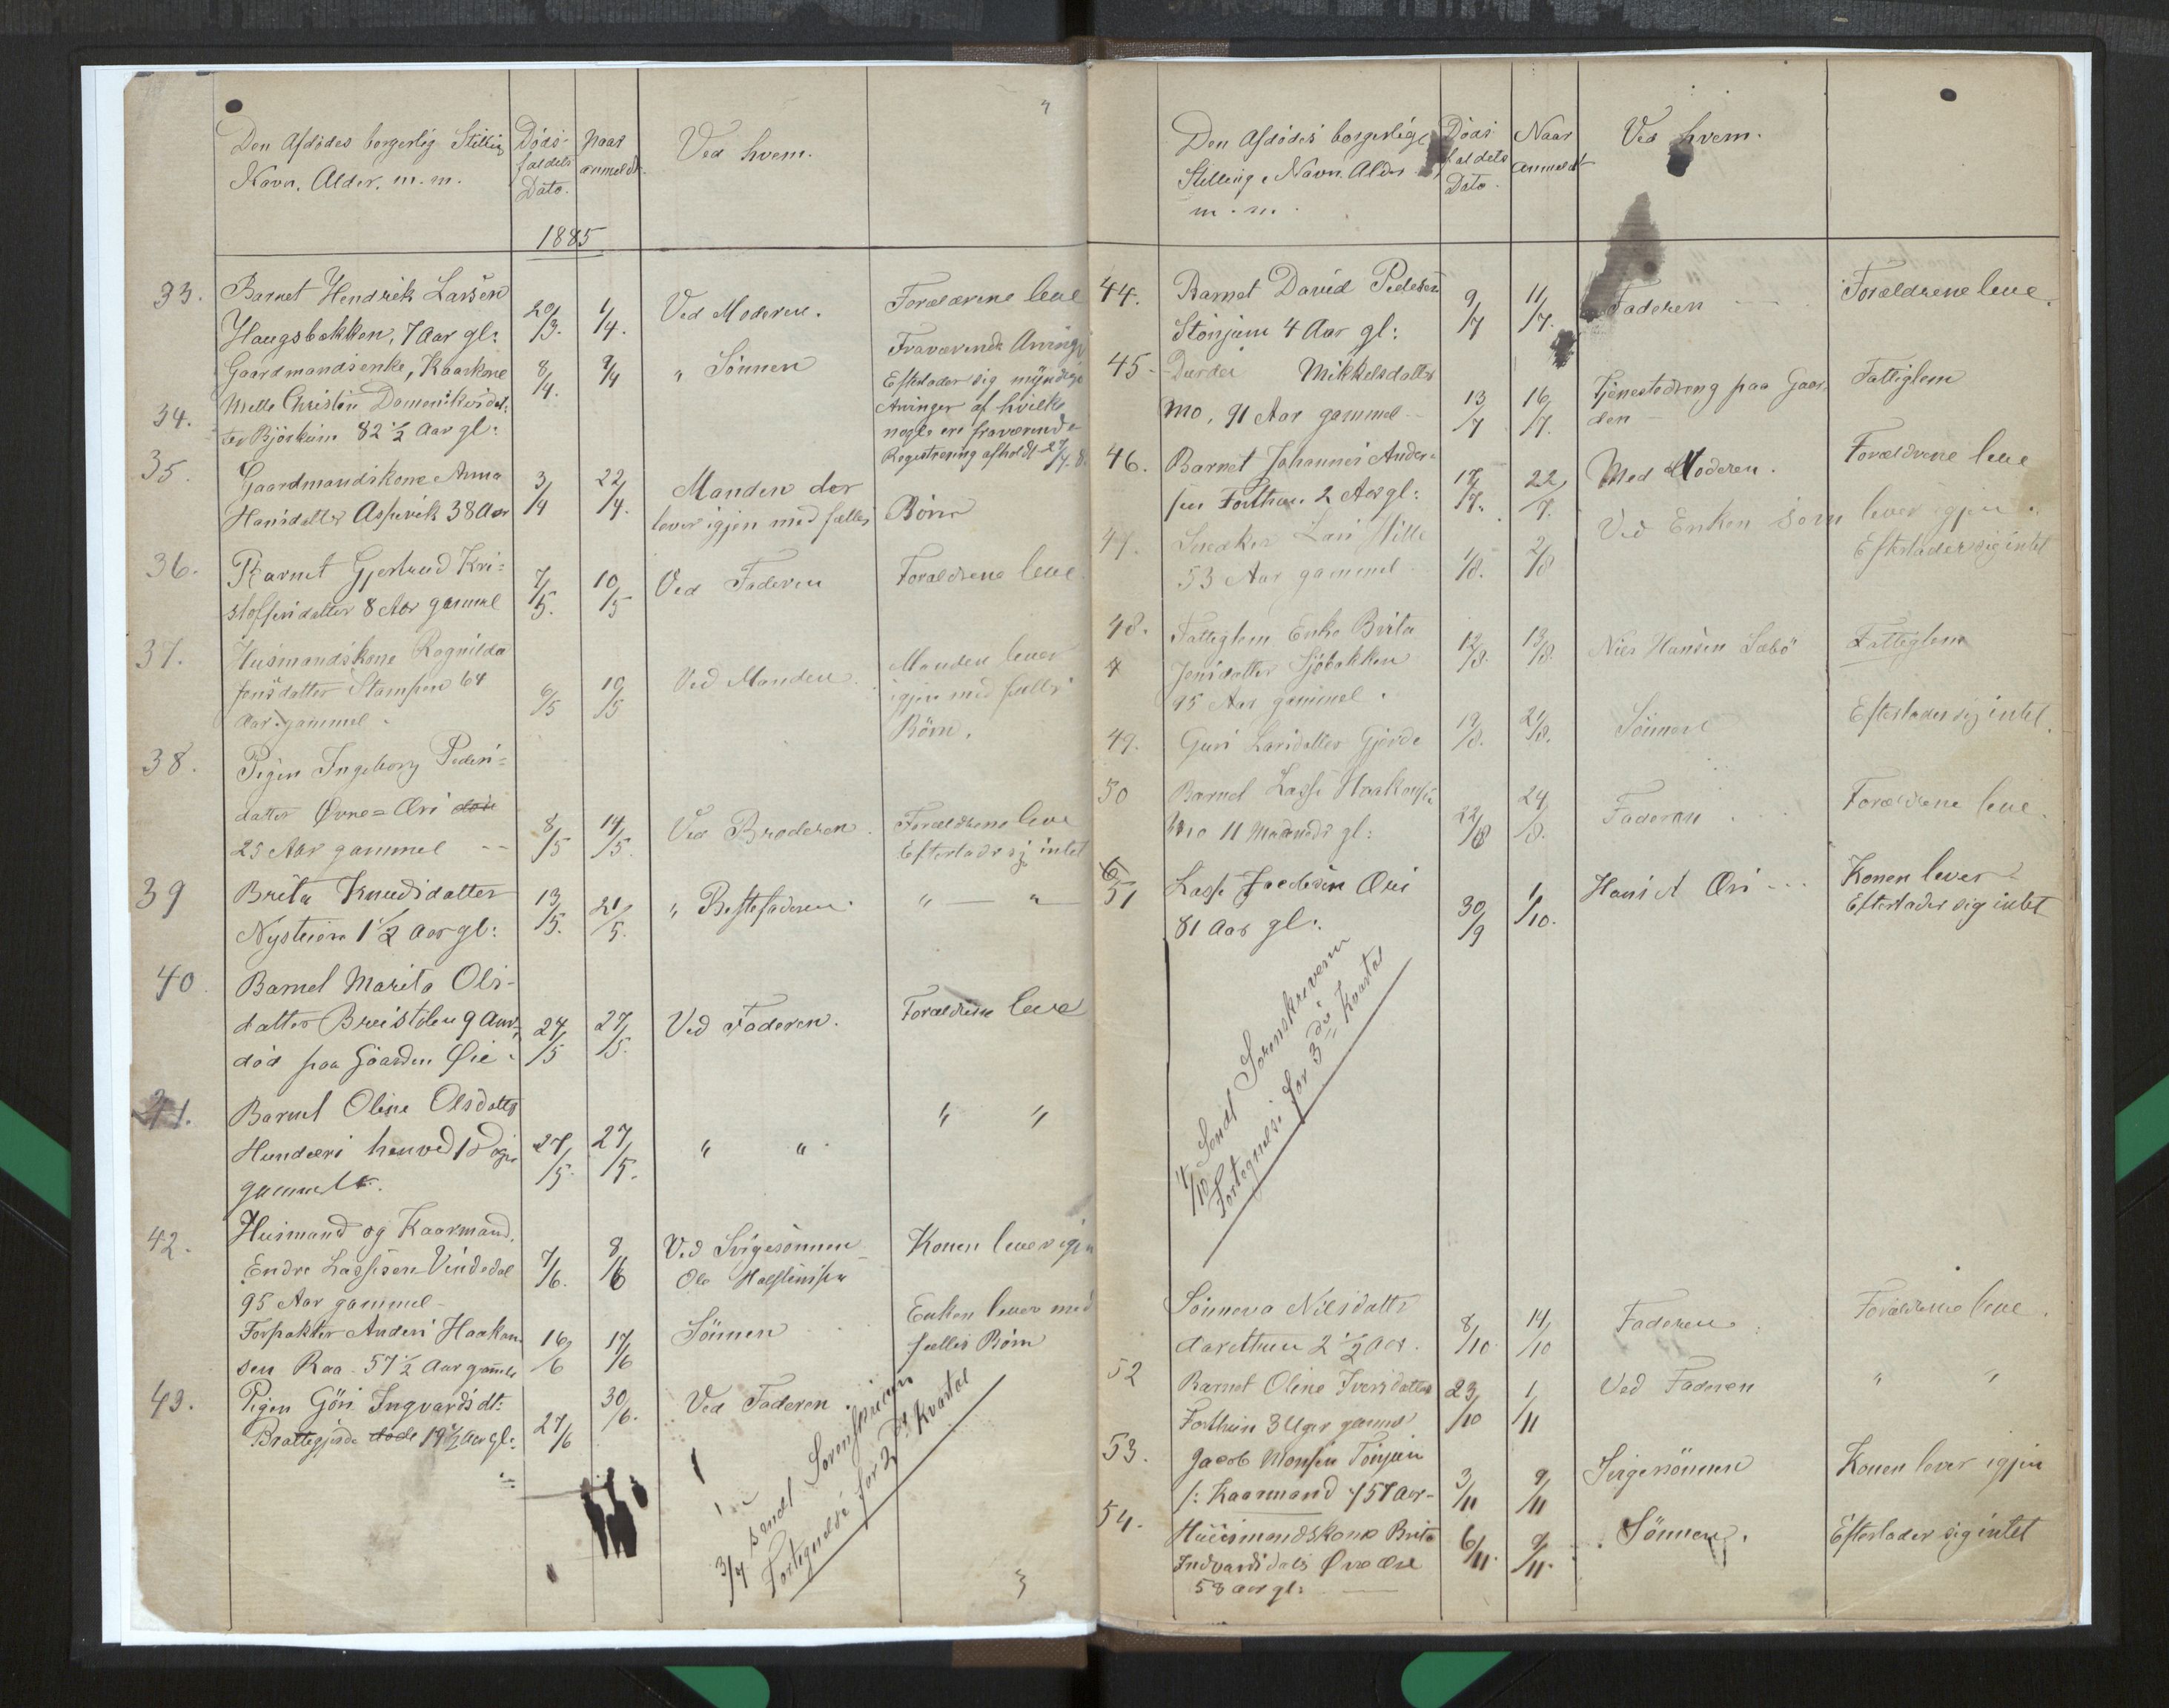 Den Afdødes borgerlig Stilling
Navn, Alder. m.m.
Døds-
faldets
Dato.
Naar
anmeldt.
Ved hvem.
1885
33. Barnet Hendrik Larsen
Haugsbakken, 7 Aar gl: 29/3. 1/4. Ved Moderen. Forældrene leve
34. Gaardmandsenke, Kaarkone 8/4. 9/4 " Sönnen Fraværende Arving
Mette Christin Domenikusdat-
ter Bjørkum 82 1/2 Aar gl:
Efterlader sig myndige
Arvinger af hvilke
nogle ere fraværende
Registrering afholdt 27/4
35. Gaardmandskone Anna 3/4 22/4. Manden der
Hansdatter Aspevik 38 Aar lever igjen med fælles Børn
36. Barnet Gjertrud Kri-
stoffersdatter 8 Aar gammel 7/5. 10/5 Ved Faderen Forældrene leve
37. Husmandskone Ragnilda
Jensdatter Stampen 64
Aar gammel 6/5 10/5 Ved Manden. Manden lever
igjen med fælles
Børn.
38. Pigen Ingeborg Peders-
datter Øvre=Øri
23 Aar gammel 8/5 14/5. Ved Broderen. Forældrene leve
Efterlader sig intet
39 Brita Knudsdatter
Nysteien 1 1/2 Aar gl: 13/5. 21/5. " Bestefaderen. " — "
40. Barnet Marita Ols-
datter Breistølen 9 Aar,
død paa Gaarden Øie 24/5 27/5. Ved Faderen. Forældrene leve
41. Barnet Oline Olsdatter
Hunderi henved 1 Dags
gammel. 27/5. 27/5. " " " "
42. Husmand og Kaarmand
Endre Lassesen Vindedal
95 Aar gammel 7/6. 8/6 Ved Svigesönnen
Ole Halstensen Konen lever igjen
Forpakter Anders Haakon-
sen Raa 57 1/2 Aar gammel 16/6 17/6 Sönnen Enken lever med
fælles Børn
43. Pigen Göri Ingvardsdt:
Brattegjerde døde 19 1/2 Aar gl: 27/6 30/6. Ved Faderen
3/7 sendt Sorenskriveren
Fortegnelse for 2det Kvartal
Den Afdødes borgerlige
Stilling, Navn, Alder
m.m.
Døds-
faldets
Dato.
Naar
anmeldt
Ved hvem.
44. Barnet David Pedersen
Stönjum 4 Aar gl: 9/7 11/7. Faderen Forældrene leve.
45. Mikkelsdatter
Mo, 91 Aar gammel 13/7 16/7. Tjenestedreng paa Gaar-
den Fattiglem
46. Barnet Johannes Ander-
sen Forthun 2 Aar gl: 17/7. 22/7. Med Moderen. Forældrene leve
47. Snedker Lars Hille
53 Aar gammel 1/8. 2/8 Ved Enken som lever igjen.
Efterlader sig intet
48. Fattiglem Enke Brita
Jensdatter Sjöbakken
95 Aar gammel. 12/8. 13/8. Nils Hansen Sæbö Fattiglem
49. Guri Larsdatter Gjerde 19/8. 21/8. Sönnen Efterlader sig intet.
50 Barnet Lasse Haakonsen
Mo 11 Maaneder gl: 22/8 24/8. Faderen Forældrene leve.
51 Lasse Øri
81 Aar gl: 30/9 1/10. Hans A Øri Konen lever
Efterlader sig intet
4/10 Sendt Sorenskriveren
Fortegnelse for 3die Kvartal
Sönneva Nilsdatter
2 1/2 Aar. 8/10. 14/10 Faderen Forældrene leve.
52 Barnet Oline Iversdatter
Forthun 3 Uger gammel 23/10 1/11 Ved Faderen " "
53. Jacob Monsen Tönjum
/: Kaarmand 57 Aar 3/11 9/11 Svigersönnen Konen lever igjen
54. Huusmandskone Brita
Indvardsdatter Øvre Øri
58 Aar gl: 6/11. 9/11. Sönnen. Efterlader sig intet